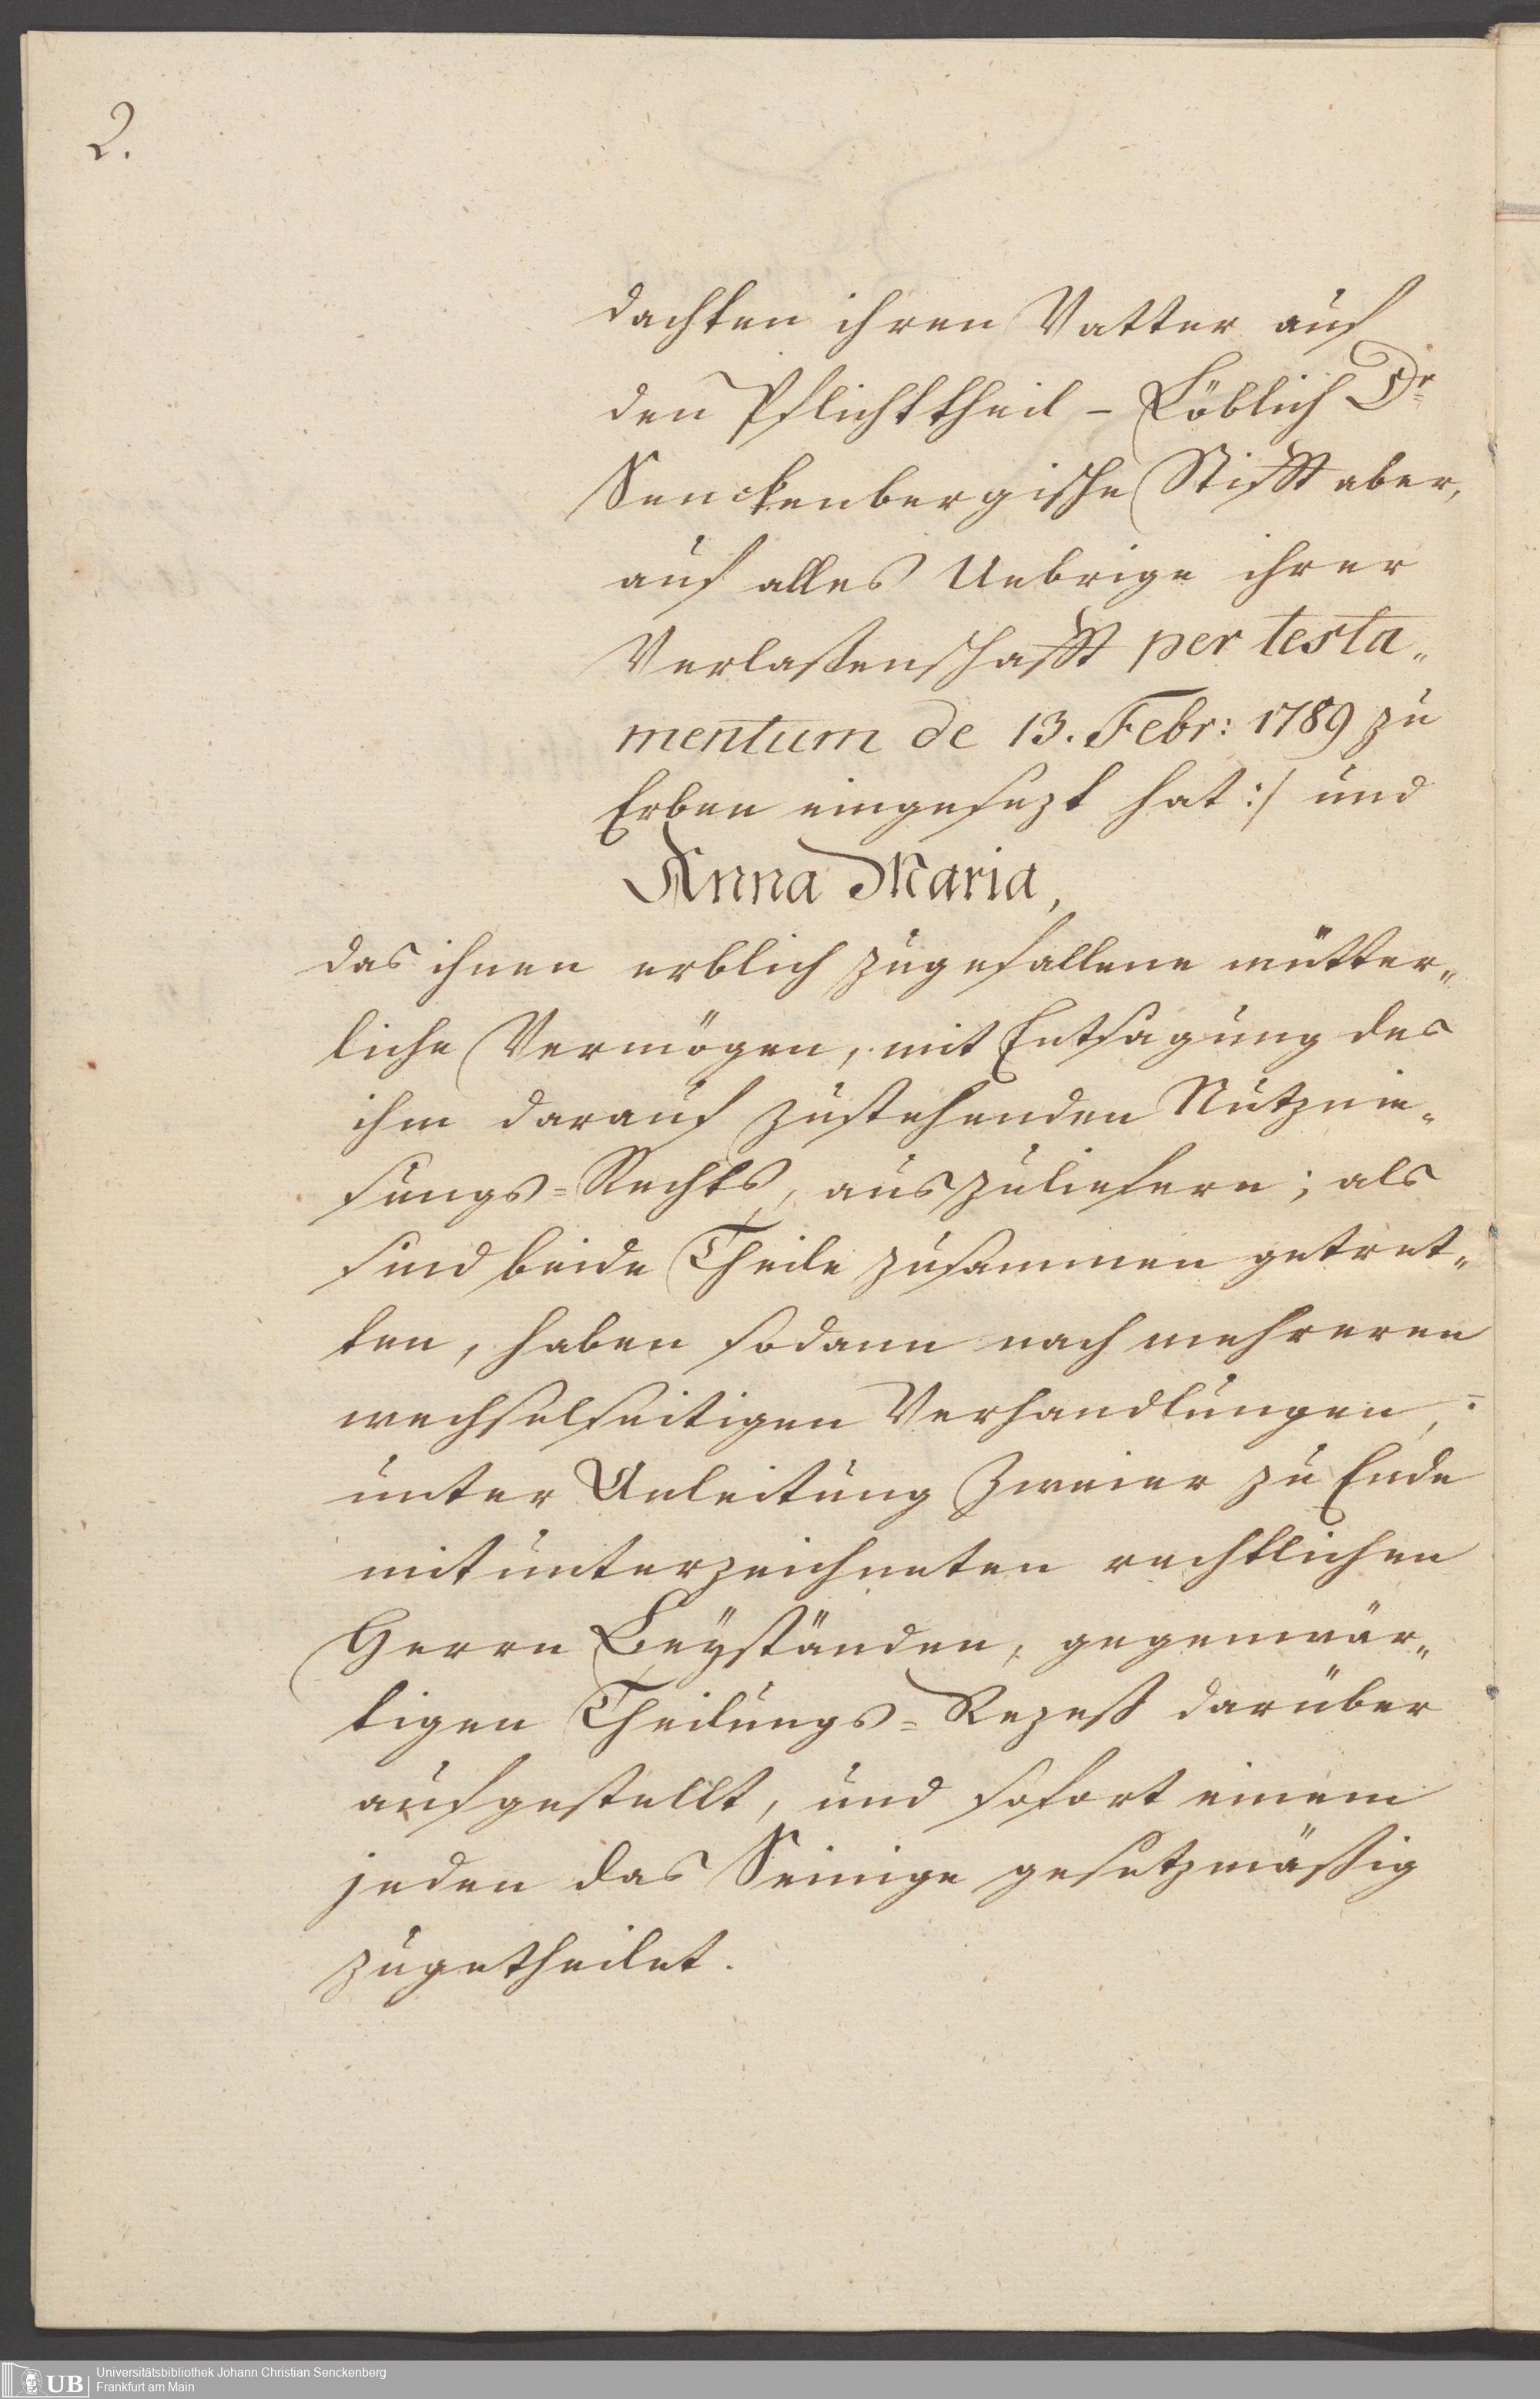 2.
dachten ihren Vatter auf
den Pflichttheil – Löblich Dr
Senckenbergische Stifft aber,
auf alles Uebrige ihrer
Verlaßenschafft per testa„
mentum de 13. Febr: 1789 zu
Erben eingesezt hat :/ und
Anna Maria,
das ihnen erblich zugefallene mütter„
liche Vermögen, mit Entsagung des
ihm darauf zustehenden Nutznie„
sungs=Rechts, auszuliefern; als
sind beide Theile zusammen getret„
ten, haben sodann nach mehreren
wechselseitigen Verhandlungen,
unter Anleitung Zweier zu Ende
mitunterzeichneten rechtlichen
Herrn Beyständen, gegenwär„
tigen Theilungs=Rezeß darüber
aufgestellt, und sofort einem
jeden das Seinige gesetzmäßig
zugetheilet.
UB
Universitätsbibliothek Johann Christian Senckenberg
Frankfurt am Main